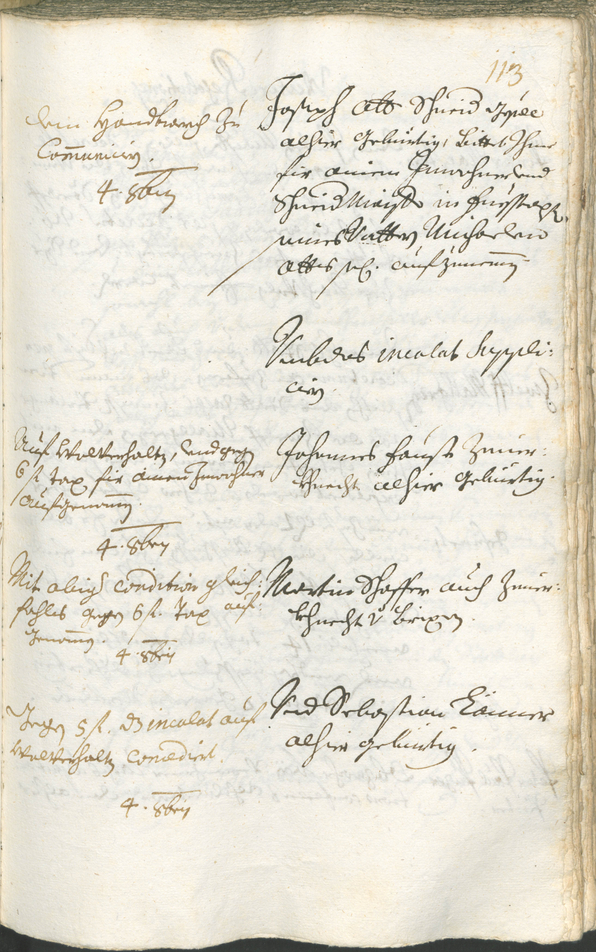 113
dem Handtwerch zu
Communicirn.
4. 8bris
Joseph Ott Schneid
alhier gebürtig, bittet Ihne
für ainen Inwohner und
Schneid Maister in
seines Vatters Michaelen
Ottes sel. aufzunemmen
Sub dus incolat suppli-
cirn
Auf Wolverhalten, und gegen
6 fl. tax für ainen Inwohner
aufgenommen.
4. 8bris
Johannes Faust
Khnecht alhier gebürtig.
Mit obiger condition gleich-
fahls gegen 6 fl. Tax auf-
genommen
4. 8bris
Martin Shaffer auch
Khnecht v. Brixen.
Gegen 5 fl. ds incolat auf
Wolverhalten concediert.
4. 8bris
Und Sebastian
alhier gebürtig.